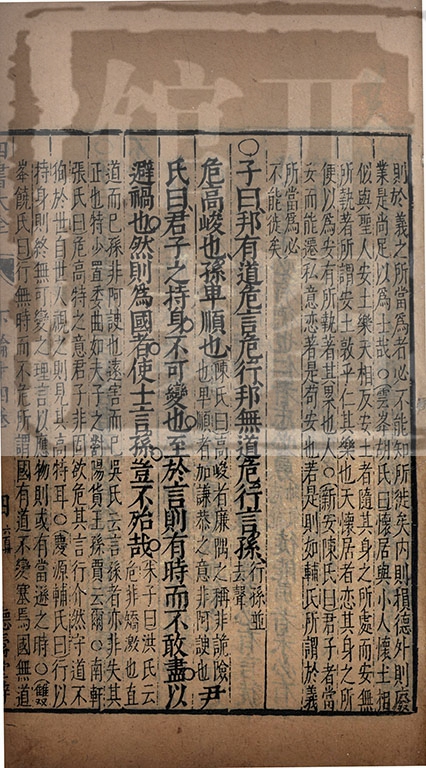 則於義之所當爲者必不能知所徙矣內則損德外則廢
業是尚足以爲士哉○雲峯胡氏曰懷居與小人懷土相
似與聖人安土樂天相反安土者隨其身之所處而安無
所執著所謂安土敦乎仁其樂也天懷居者戀其身之所
便以爲安有所執著其累也人○新安陳氏曰君子者當
安而能遷私意戀著是苟安也若是則如輔氏所謂於義
所當爲必
不能徙矣
○子曰邦有道危言危行邦無道危行言孫行孫並
去聲
危高峻也孫卑順也陳氏曰高峻有廉隅之稱非詭險
也卑順者加謙恭之意非阿諛也尹
氏曰君子之持身不可變也至於言則有時而不敢盡以
避禍也然則爲國者使士言孫豈不殆哉朱子曰洪氏云
危非矯激也直
道而已孫非阿諛也遠害而已吳氏云言孫者亦非失其
正也特少置委曲如夫子之對陽貨王孫賈云爾○南軒
張氏曰危高特之意君子非固欲危其言行介然守道不
徇於世自世人視之則見其高特耳○慶源輔氏曰行以
持身則終無可變之理言以應物則或有當遜之時○雙
峯饒氏曰行無時而不危所謂國有道不變塞焉國無道
四書大全